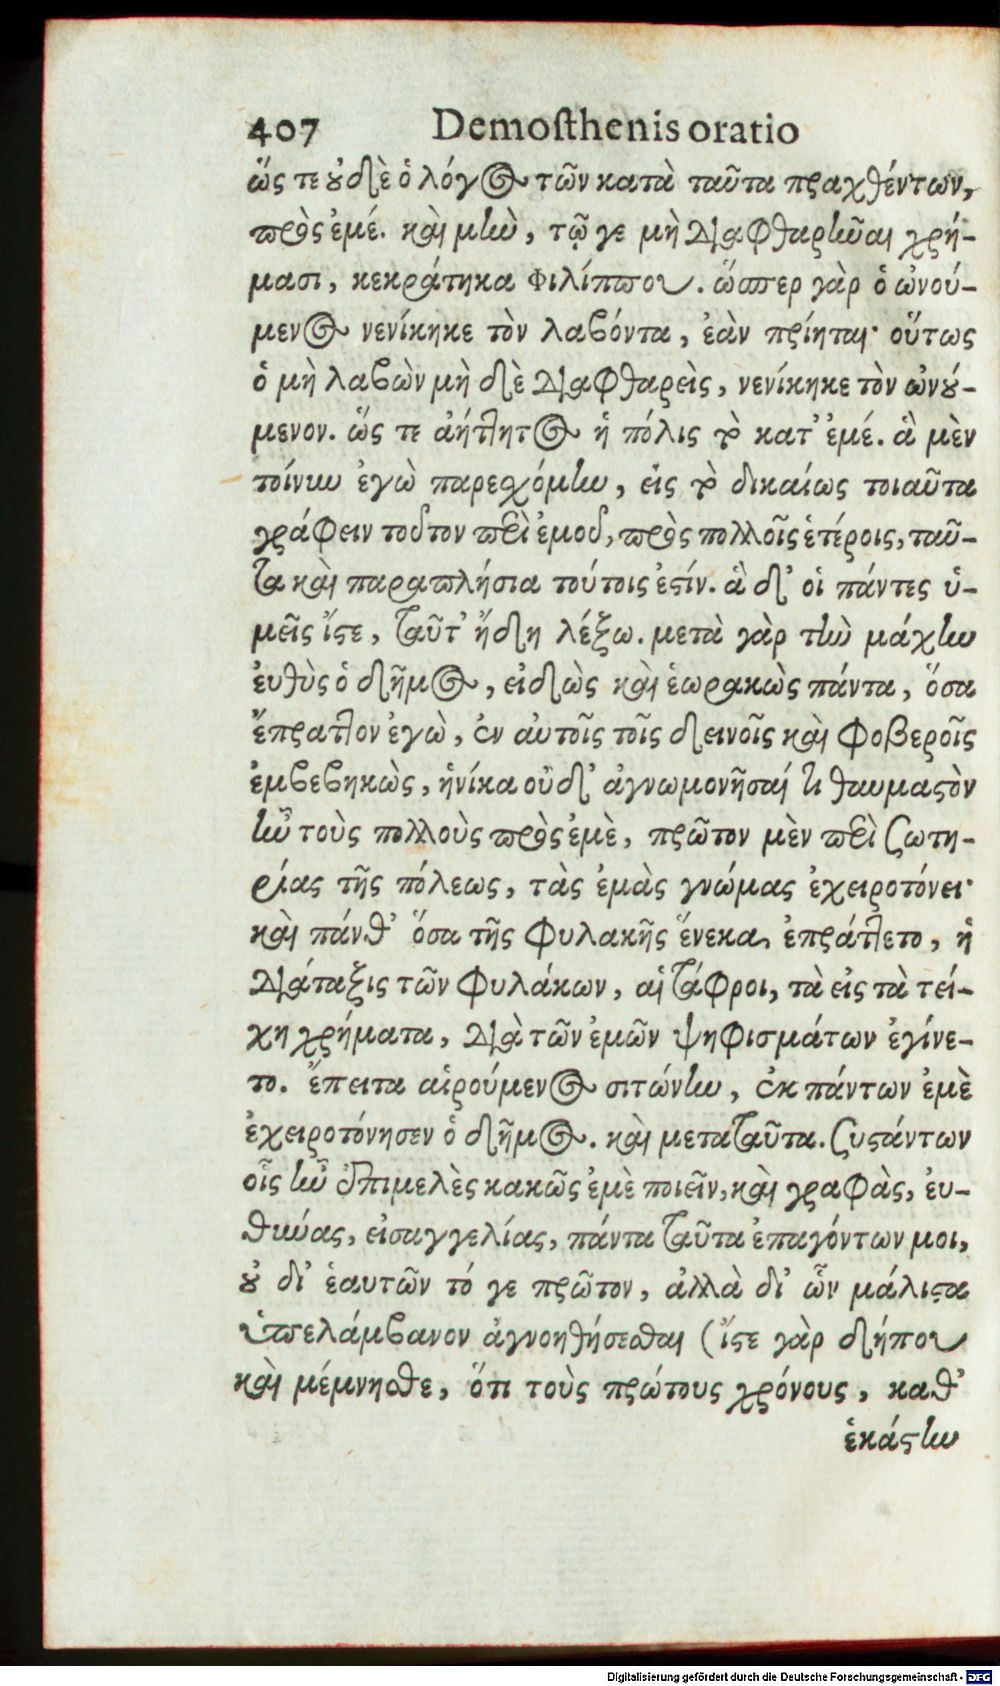 407 Demosthenis oratio
ὥς τε οὐδὲ ὁ λόγος τῶν κατὰ ταῦτα πραχθέντων,
πρὸς ἐμέ. καὶ μὴν, τῷ γε μὴ διαφθαρῆναι χρή-
μασι, κεκράτηκα Φιλίππου. ὥσπερ γὰρ ὁ ὠνού-
μενος νενίκηκε τὸν λαβόντα, ἐὰν πρίηται· οὕτως
ὁ μὴ λαβὼν μὴ δὲ διαφθαρεὶς, νενίκηκε τὸν ὠνού-
μενον. ὥς τε ἀήττητος ἡ πόλις τὸ κατ' ἐμέ. ἃ μὲν
τοίνυν ἐγὼ παρεχόμην, εἰς τὸ δικαίως τοιαῦτα
γράφειν τοῦτον περὶ ἐμοῦ, πρὸς πολλοῖς ἑτέροις, ταῦ-
τα καὶ παραπλήσια τούτοις ἐστίν. ἃ δ' οἱ πάντες ὑ-
μεῖς ἴστε, ταῦτ' ἤδη λέξω. μετὰ γὰρ τὴν μάχην
ἐυθὺς ὁ δῆμος, εἰδὼς καὶ ἑωρακὼς πάντα, ὅσα
ἔπραττον ἐγὼ, ἐν αὐτοῖς τοῖς δεινοῖς καὶ φοβεροῖς
ἐμβεβηκὼς, ἡνίκα οὐδ' ἀγνωμονῆσαί τι θαυμαστὸν
ἦν τοὺς πολλοὺς πρὸς ἐμὲ, πρῶτον μὲν περὶ σωτη-
ρίας τῆς πόλεως, τὰς ἐμὰς γνώμας ἐχειροτόνει·
καὶ πάνθ' ὅσα τῆς φυλακῆς ἕνεκα ἐπράττετο, ἡ
διάταξις τῶν φυλάκων, αἱ τάφροι, τὰ εἰς τὰ τεί-
χη χρήματα, διὰ τῶν ἐμῶν ψηφισμάτων ἐγίνε-
το. ἔπειτα αἱρούμενος σιτώνην, ἐκ πάντων ἐμὲ
ἐχειροτόνησεν ὁ δῆμος. καὶ μετα ταῦτα. συστάντων
οἷς ἦν ἐπιμελὲς κακῶς ἐμὲ ποιεῖν, καὶ γραφὰς, ἐυ-
θύνας, εἰσαγγελίας, πάντα ταῦτα ἐπαγόντων μοι,
οὐ δι' ἑαυτῶν τό γε πρῶτον, ἀλλὰ δι' ὧν μάλιστα
ὑπελάμβανον ἀγνοηθήσεσθαι (ἴστε γὰρ δήπου
καὶ μέμνησθε, ὅτι τοὺς πρώτους χρόνους, καθ'
ἑκάστην
Digitalisierung gefördert durch die Deutsche Forschungsgemeinschaft - DFG